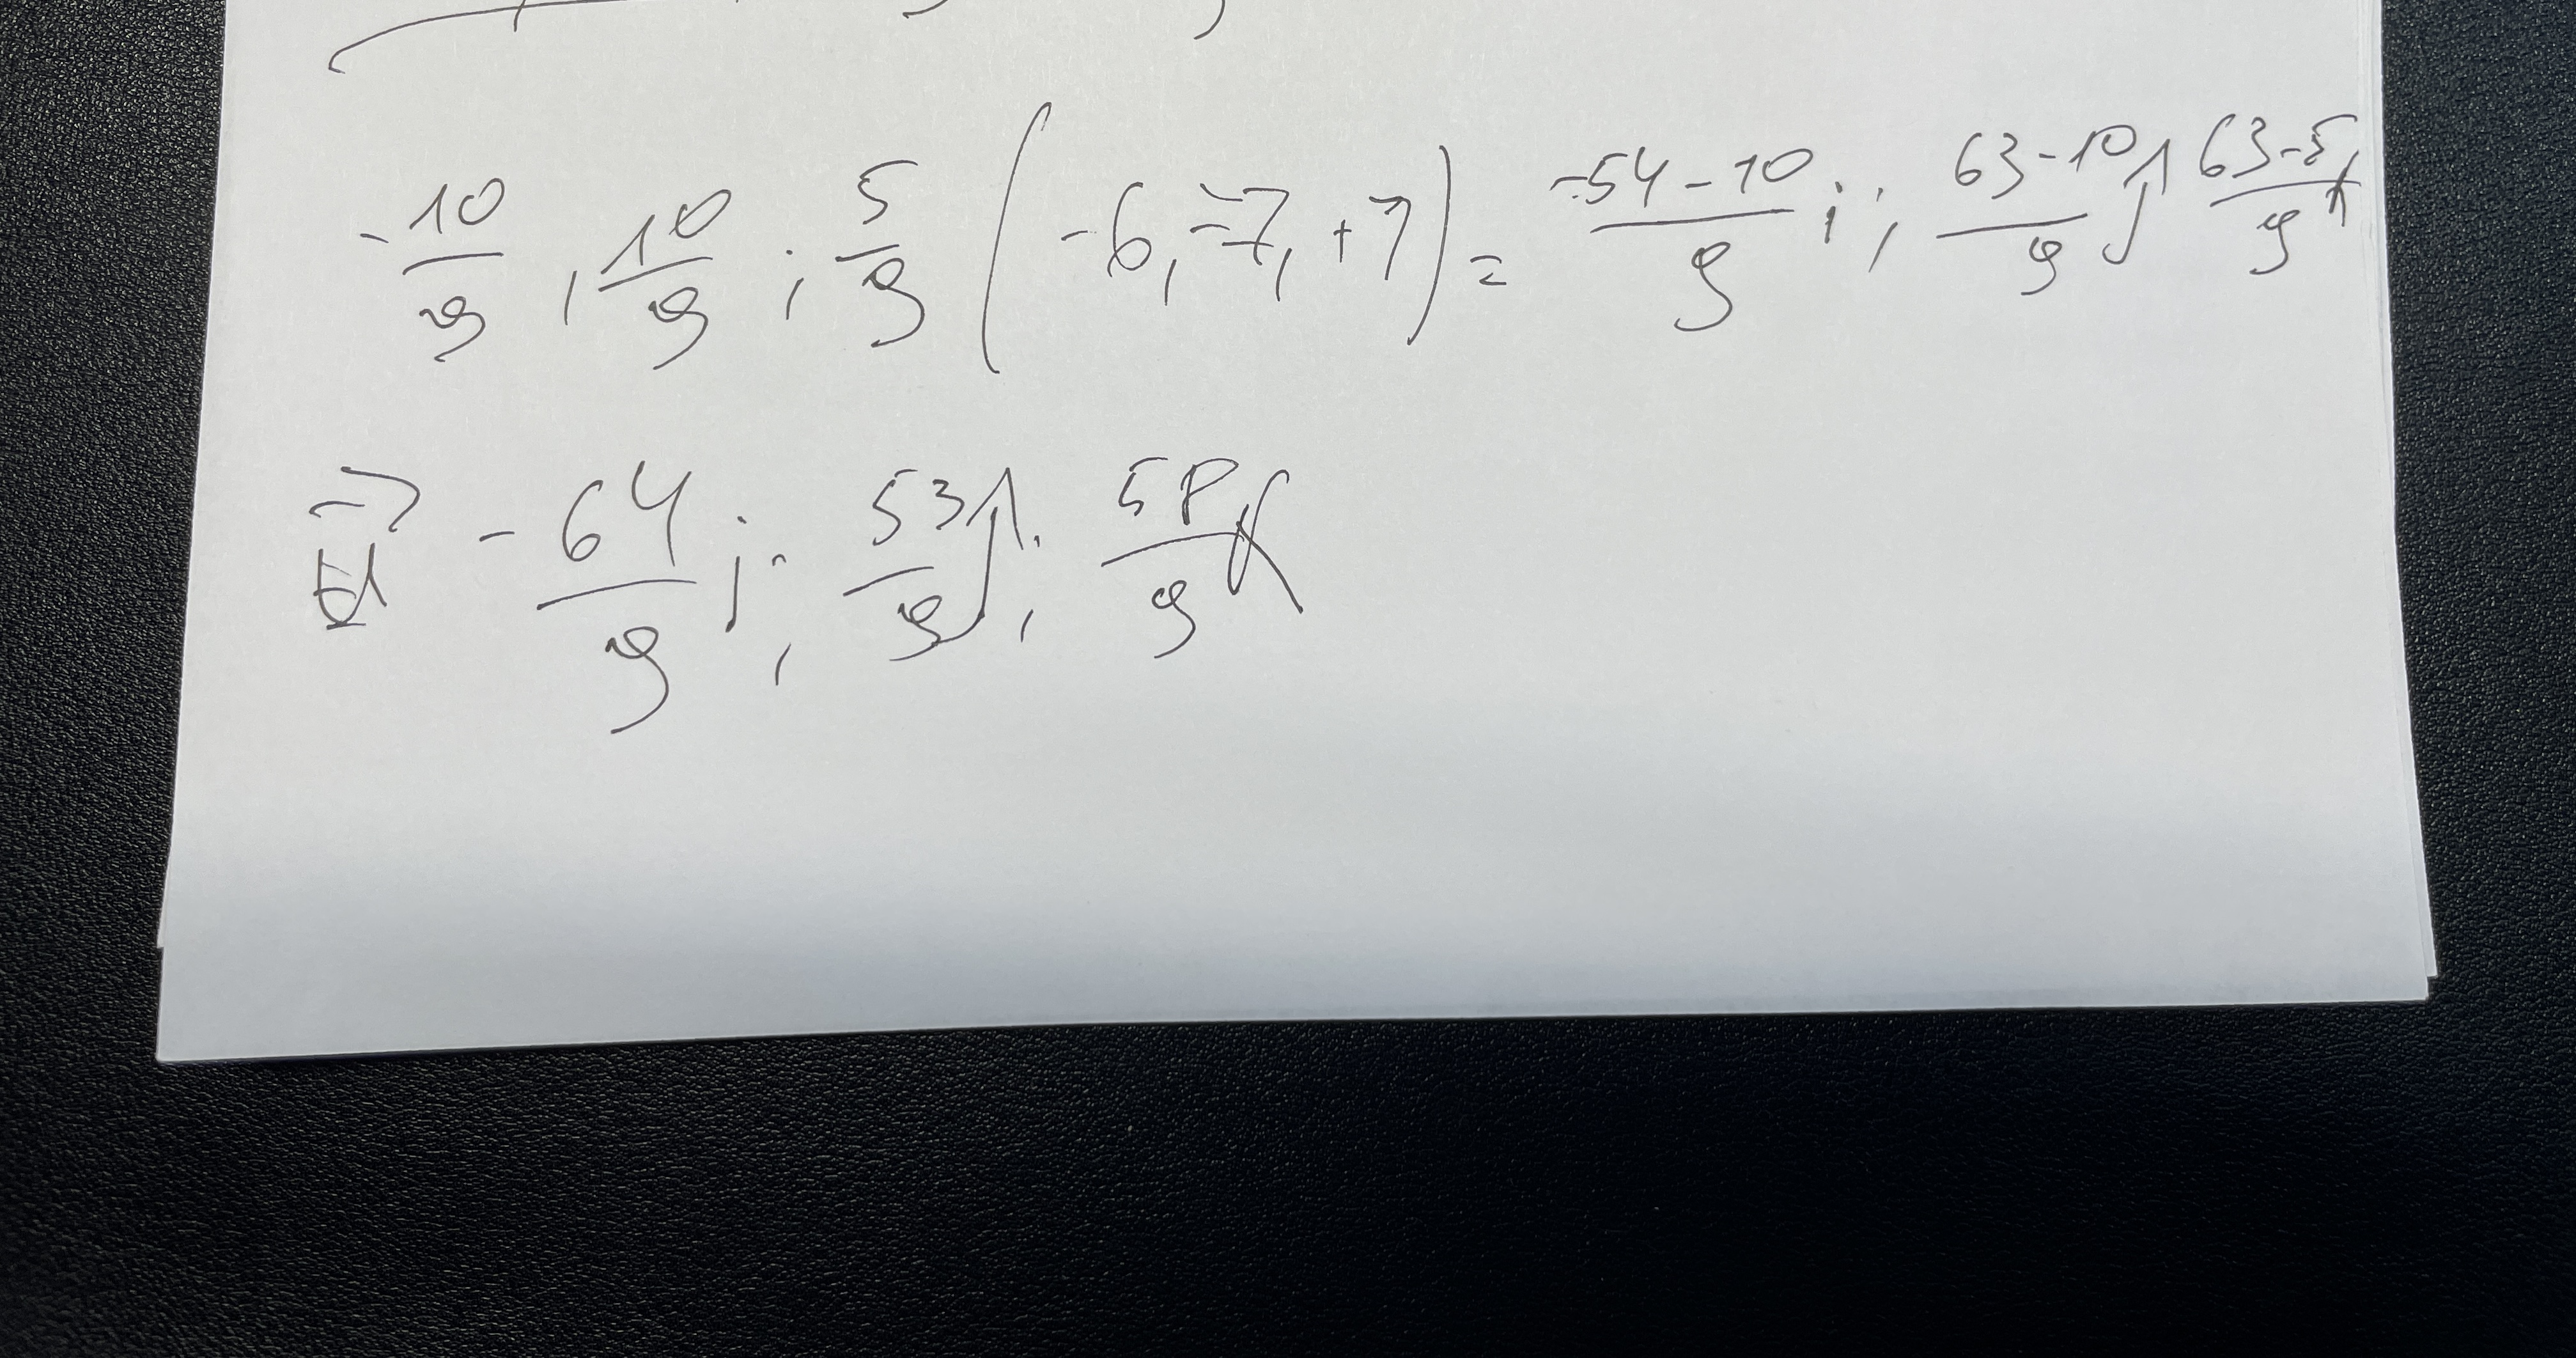 -10/9, 10/9; 5/9 (-6, -7, +7) = -54-10/9 i; 63-10/9 j 63-5/9 k
=> - 64/9 i; 53/9 j; 58/9 k